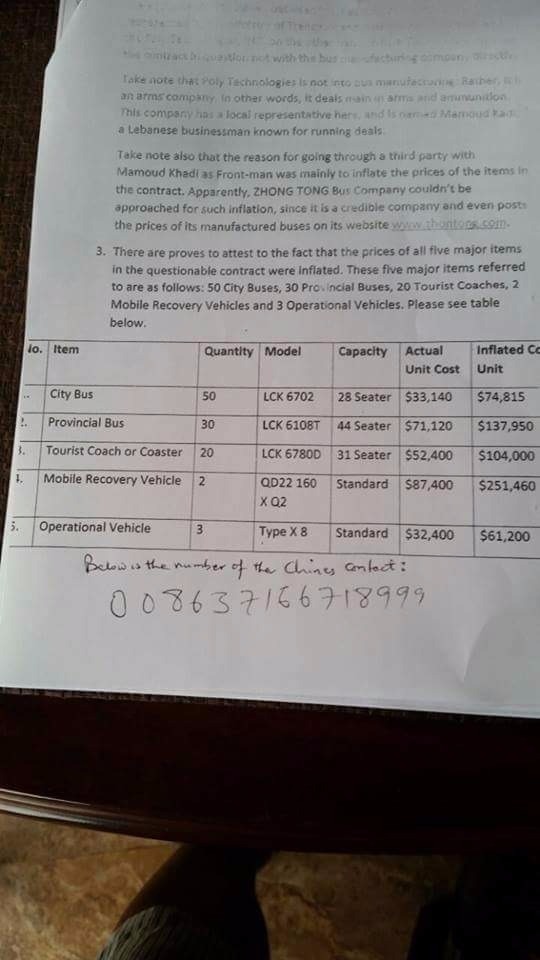 with the bus manufacturing company directly.
Take note that Poly Technologies is not into bus manufacturing. Rather, it is
an arms company. In other words, it deals main in arms and ammunition.
This company has a local representative here, and is named Mamoud
a Lebanese businessman known for running deals.
Take note also that the reason for going through a third party with
Mamoud Khadi as Front-man was mainly to inflate the prices of the items in
the contract. Apparently, ZHONG TONG Bus Company couldn't be
approached for such inflation, since it is a credible company and even posts
the prices of its manufactured buses on its website www.zhontong.com.
3. There are proves to attest to the fact that the prices of all five major items
in the questionable contract were inflated. These five major items referred
to are as follows: 50 City Buses, 30 Provincial Buses, 20 Tourist Coaches, 2
Mobile Recovery Vehicles and 3 Operational Vehicles. Please see table
below.
lo. Item Quantity Model Capacity Actual Unit Cost Inflated Co Unit
City Bus 50 LCK 6702 28 Seater $33,140 $74,815
Provincial Bus 30 LCK 6108T 44 Seater $71,120 $137,950
Tourist Coach or Coaster 20 LCK 6780D 31 Seater $52,400 $104,000
Mobile Recovery Vehicle 2 QD22 160 X Q2 Standard $87,400 $251,460
5. Operational Vehicle 3 Type X 8 Standard $32,400 $61,200
Below is the number of the Chines contact:
008637166718999